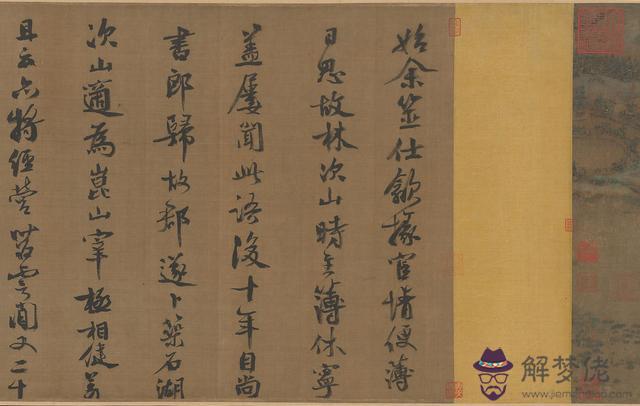 始余筮仕歙掾宦情便薄
日思故林次山時主簿休寧
蓋屢聞此語後十年自尚
書郎歸故郡遂卜築石湖
次山適為崑山宰極相健羨
且云亦將經營苕霅間又二十
解梦佬